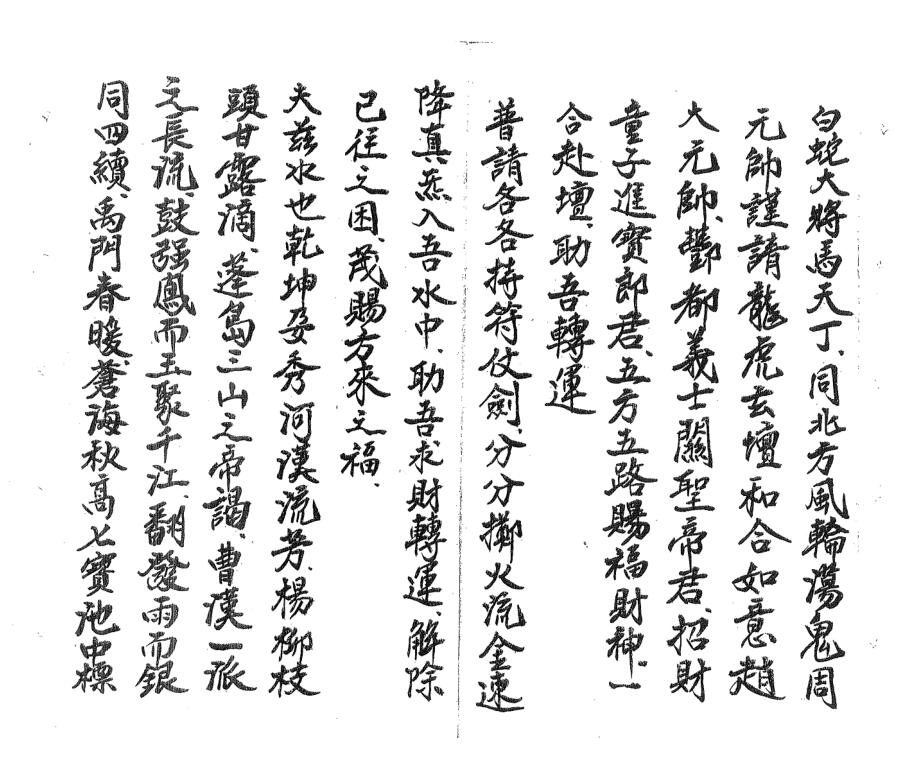 白蛇大將馬天丁、同北方風輪蕩鬼周
元帥謹請龍虎玄壇和合如意趙
大元帥、酆都義士關聖帝君、招財
童子進寶郎君、五方五路賜福財神、一
合赴壇、助吾轉運
普請各各持符仗劍、分分擲火流金速
降真炁入吾水中、助吾求財轉運、解除
已往之困、茂賜方來之福、
夫茲水也乾坤孕秀河漢流芳、楊柳枝
頭甘露滴、蓬島三山之帝謁、曹漢一派
之長流、鼓強鳳而玉聚千江、翻潑雨而銀
同四續、禹門春暖、蒼海秋高七寶池中標